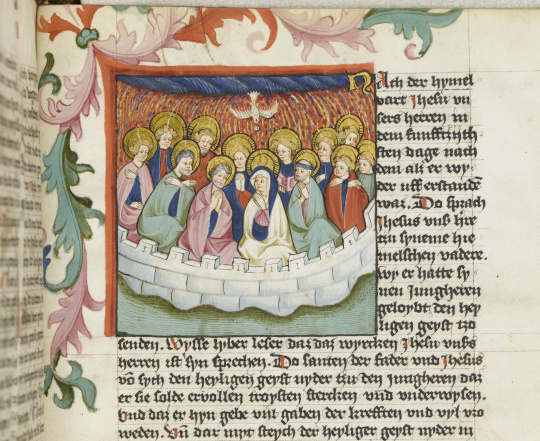 Nach der hymel
vart Jhesu vn
sers herren in
dem funfftzich
sten dage nach
dem als er wy
der uff erstandē
was. Do sprach
Jhesus vnß hre
ten syneme hie
melschen vadere.
wy er hatte sy
nen Jungheren
geloybt den hey
ligen geyst tzo
senden. Wysse lyber leser daz daz wyrcken Jhesu vnßs
herren ist syn sprechen. Do santen der fader vnd Jhesus
vō sych den heyligen geyst nyder tzu den Jungheren daz
er sie solde ervollen troysten stercken vnd vnderwysen.
Vnd daz er hyn gebe vnl gaben der krefften vnd vyl vro
weden. Vn̄ dar myt steych der heyliger geyst nyder in